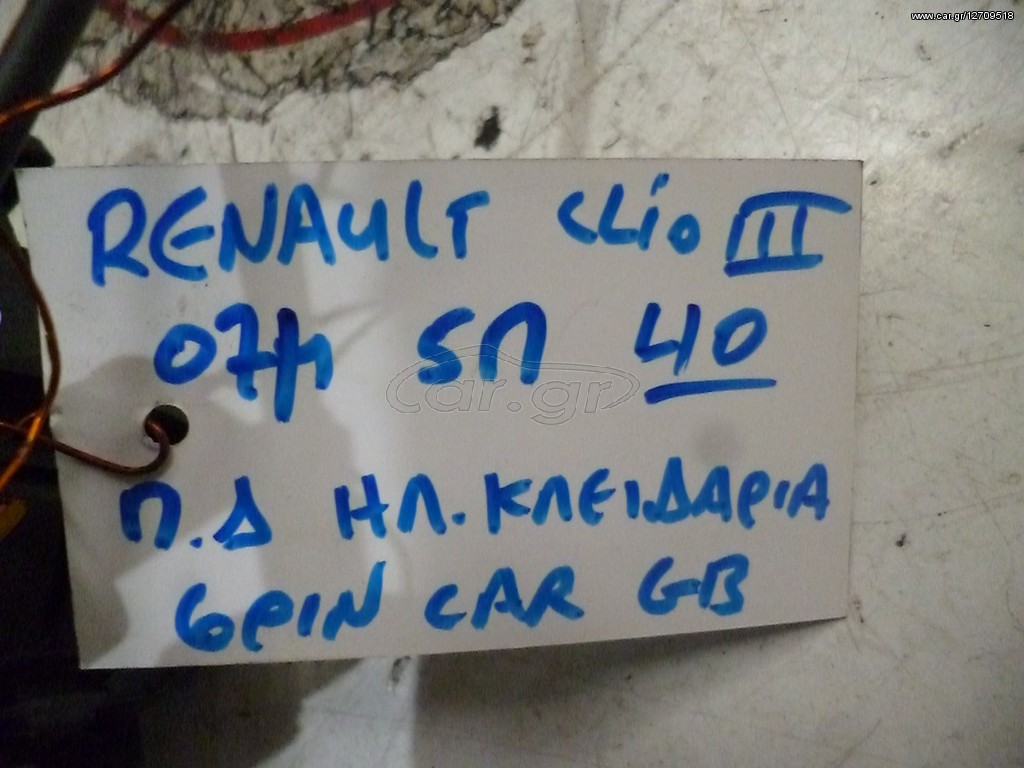 www.car.gr/12709518
RENAULT CLIO III
07μ 5Π 40
car.gr
Π.Δ ΗΛ.ΚΛΕΙΔΑΡΙΑ
6PIN CAR GB